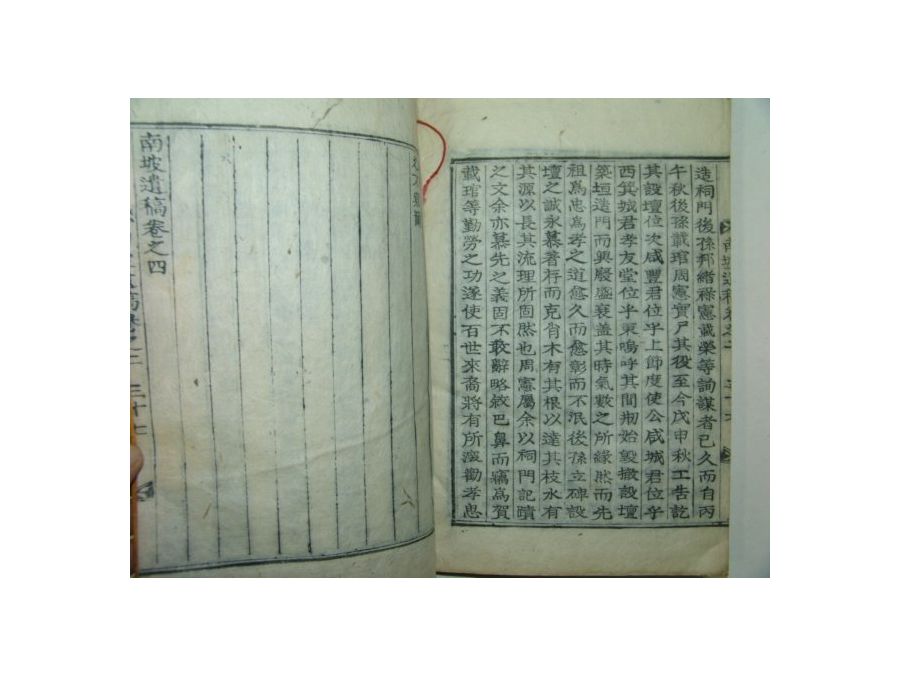 造祠門後孫邦緖祿憲載榮等詢謀者已久而自丙
午秋後孫載琯周憲實尸其役至今戊申秋工告訖
其設壇位次咸豐君位乎上節度使公咸城君位乎
西箕城君孝友堂位乎東嗚呼其間刱始毀撤設壇
築垣造門而興廢盛衰盖其時氣數之所緣然而先
祖爲忠爲孝之道愈久而愈彰而不泯後孫立碑設
壇之誠永慕著存而克肖木有其根以達其枝水有
其源以長其流理所固然也周憲屬余以祠門記蹟
之文余亦慕先之義固不敢辭略敘巴鼻而竊爲賀
載琯等勤勞之功遂使百世來裔將有所激勸孝思
南坡遺稿卷之四